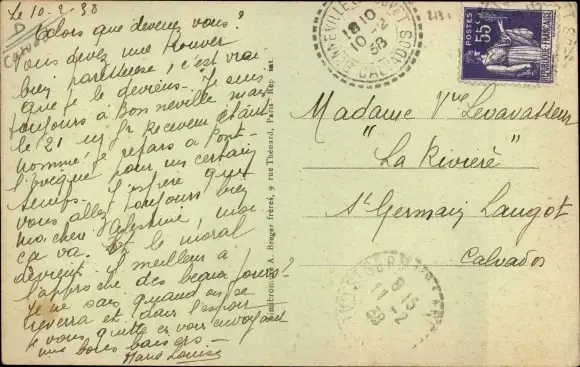 Le 10-2-38
Alors que devenez vous?
Vous devez me trouver
bien paresseuse, c'est vrai
que je le deviens. Je suis
toujours à Bonneville mais
le 21 Mr Receveur étant
nommé je repars à Pont-
l'Evêque pour un certain
temps. J'espère que
vous allez toujours bien
ma chère Célestine, moi
ça va. Et le moral
devient il meilleur à
l'approche des beaux jours?
Je ne sais quand on se
reverra et dans l'espoir
je vous quitte en vous envoyant
une bons baisers.
Marie Louise
Simibromure A. Breger frères, 9 rue Thénard, Paris
18 10
10 -2
38
CALVADOS
POSTES
55c
REPUBLIQUE FRANÇAISE
Madame Vve Levavasseur
"La Rivière"
St Germain Langot
Calvados
8 15
11 -2
38